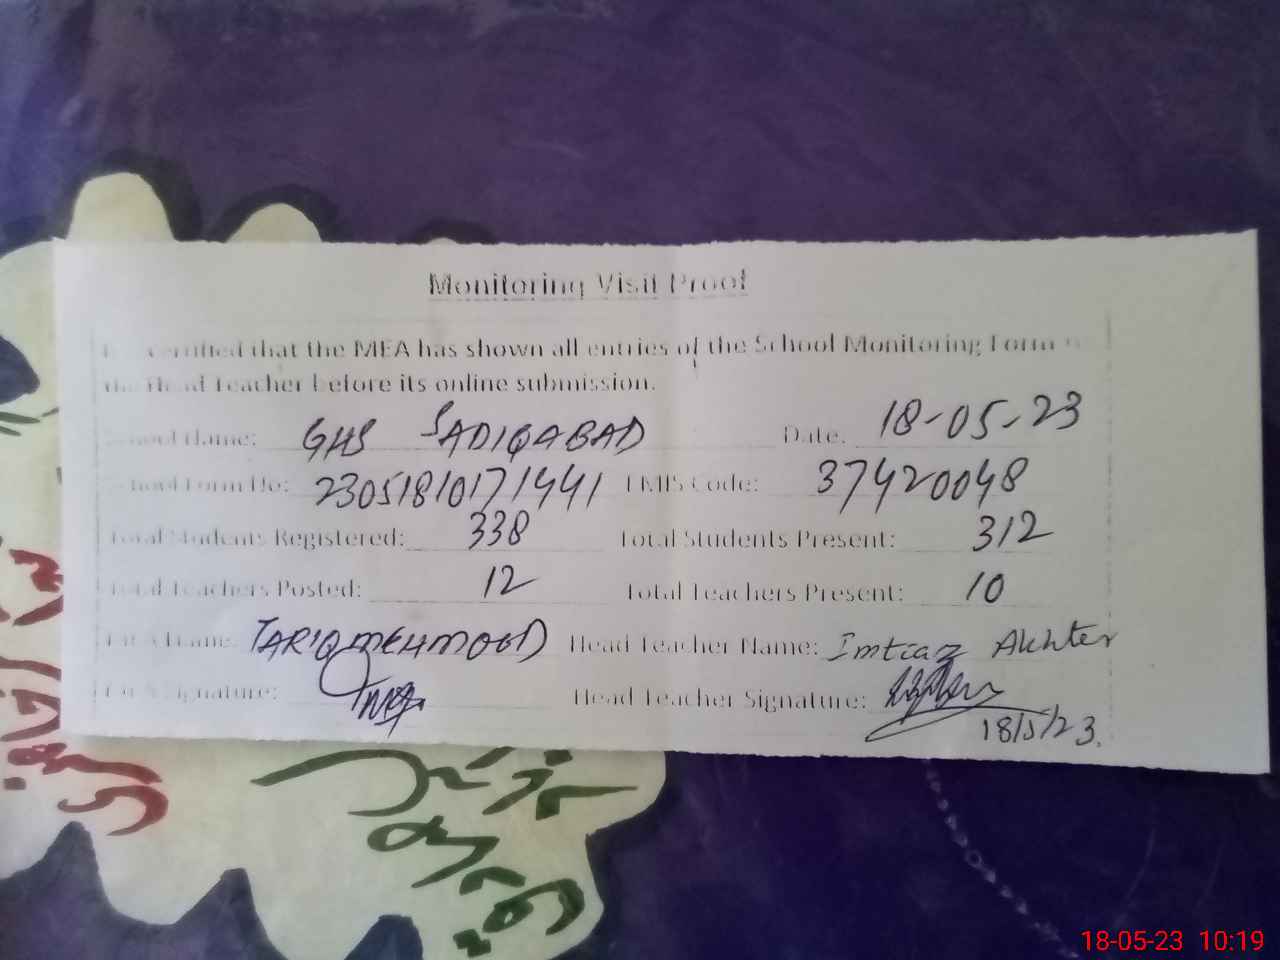 Monitoring Visit Proof
certified that the MEA has shown all entries of the School Monitoring Form
the Head Teacher before its online submission.
School Name: GHS SADIQABAD Date: 18-05-23
School Form No: 23051810171441 EMIS Code: 37420048
Total Students Registered: 338 Total Students Present: 312
Total Teachers Posted: 12 Total Teachers Present: 10
Name: TARIQ MEHMOOD Head Teacher Name: Imtiaz Akhter
Signature: Head Teacher Signature:
18/5/23.
18-05-23 10:19